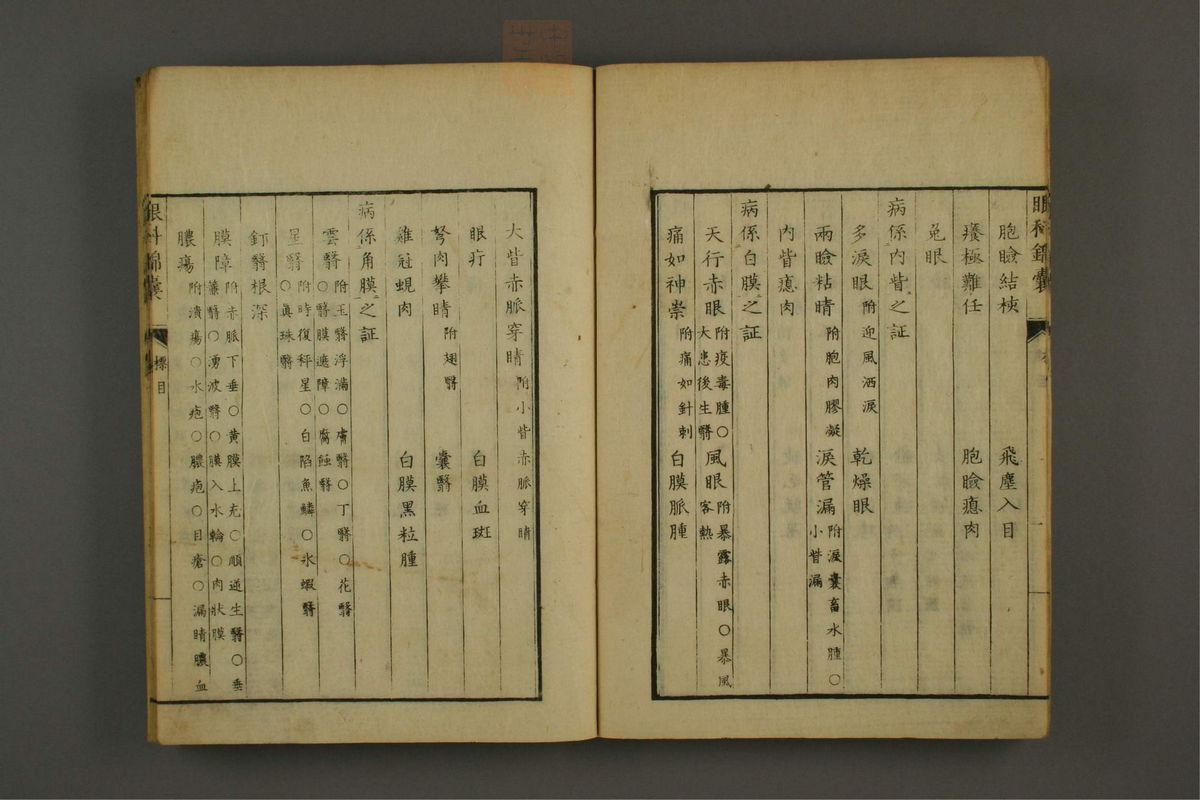 眼科錦囊
胞瞼結梗 飛塵入目
癢極難任 胞瞼瘜肉
兎眼
病係內眥之証
多淚眼 附迎風洒淚 乾燥眼
兩瞼粘睛 附胞肉膠凝 淚管漏 附淚囊畜水腫○小眥漏
內眥瘜肉
病係白膜之証
天行赤眼 附疫毒腫○大患後生翳 風眼 附暴露赤眼○暴風客熱
痛如神祟 附痛如針刺 白膜脈腫
大眥赤脈穿睛 附小眥赤脈穿睛
眼疔 白膜血斑
胬肉攀睛 附翅翳 囊翳
雞冠蜆肉 白膜黑粒腫
病係角膜之証
雲翳 附玉翳浮滿○膚翳○丁翳○花翳○翳膜遮障○腐蝕翳
星翳 附時復秤星○白陷魚鱗○氷蝦翳○眞珠翳
釘翳根深
膜障 附赤脈下垂○黃膜上充○順逆生翳○垂簾翳○湧波翳○膜入水輪○肉狀膜
膿瘍 附潰瘍○水疱○膿疱○目瘡○漏睛膿血
眼科錦囊
標目